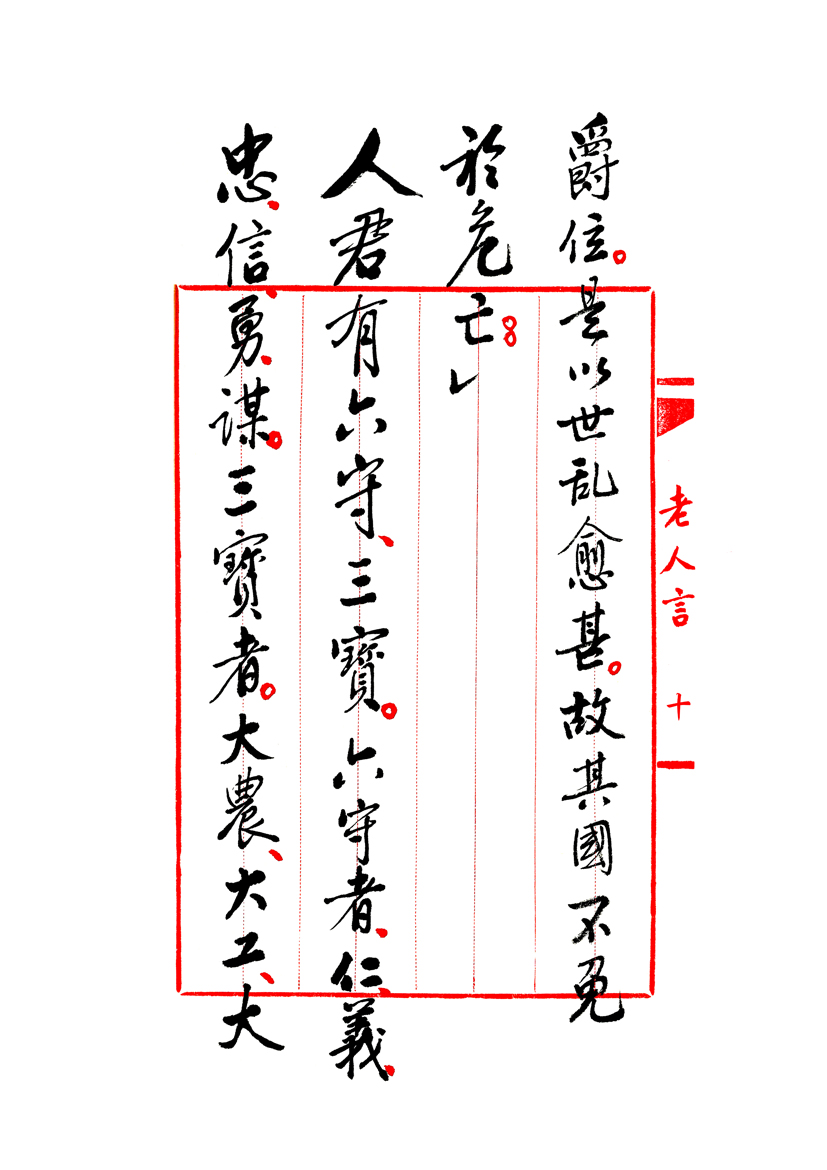 爵位。是以世乱愈甚。故其國不免
於危亡。。」
人君有六守、三寶。六守者、仁、義、
忠、信、勇、謀。三寶者。大農、大工、大
老人言 十